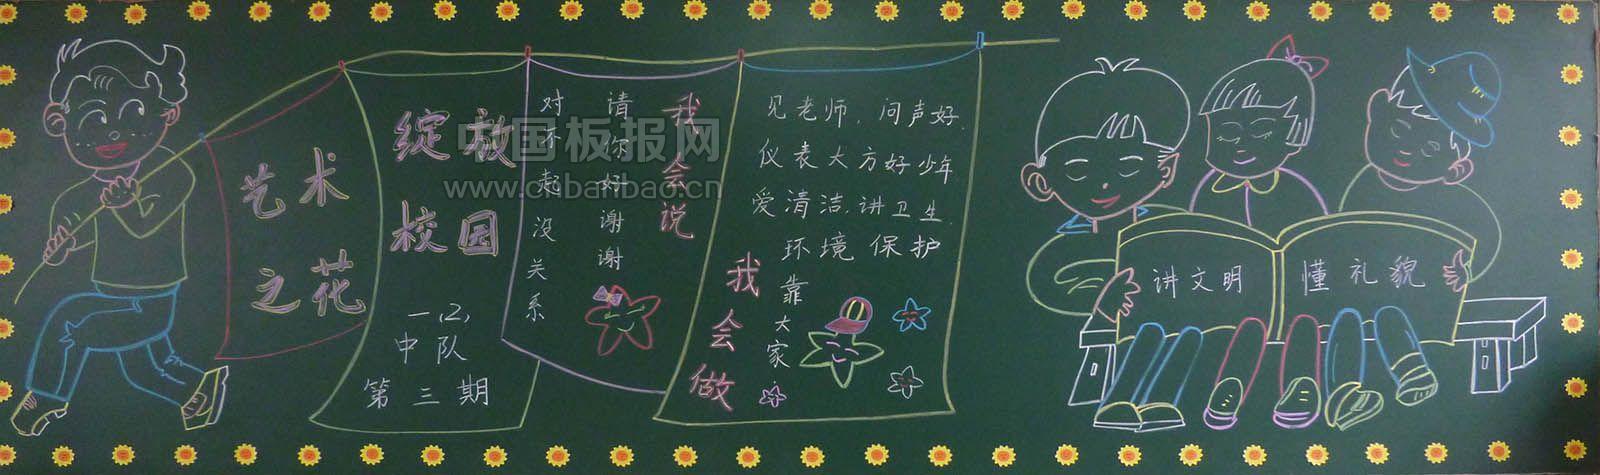 艺术
之花
绽放
校园
一(2)
中队
第三期
我会说
请你好谢谢
对不起没关系
我会做
见老师,问声好.
仪表大方好少年
爱清洁,讲卫生.
环境保护
靠大家
讲文明
懂礼貌
中国板报网
www.cnbanbao.cn